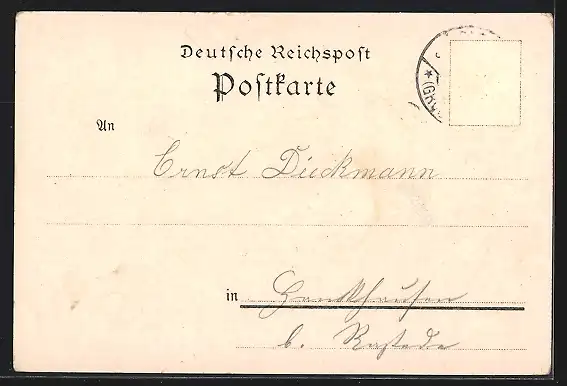 Deutsche Reichspost
Postkarte
An
Ernst Dieckmann
in Hankhausen
b. Rastede